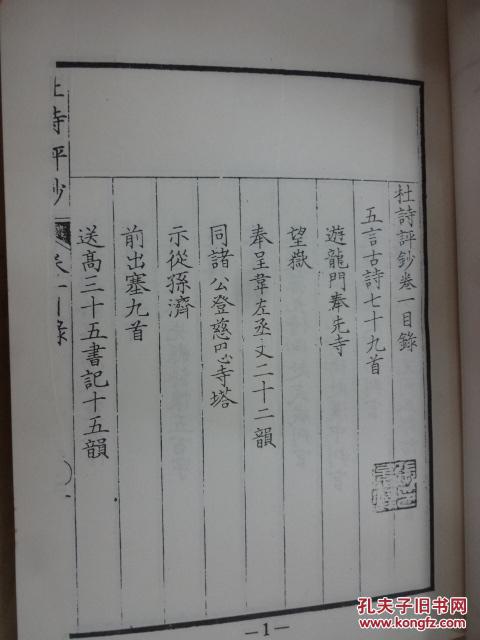 杜詩評鈔卷一目錄
五言古詩七十九首
遊龍門奉先寺
望嶽
奉呈韋左丞丈二十二韻
同諸公登慈恩寺塔
示從孫濟
前出塞九首
送高三十五書記十五韻
杜詩評鈔
卷一目錄
一
—1—
孔夫子旧书网
KONGFZ.COM